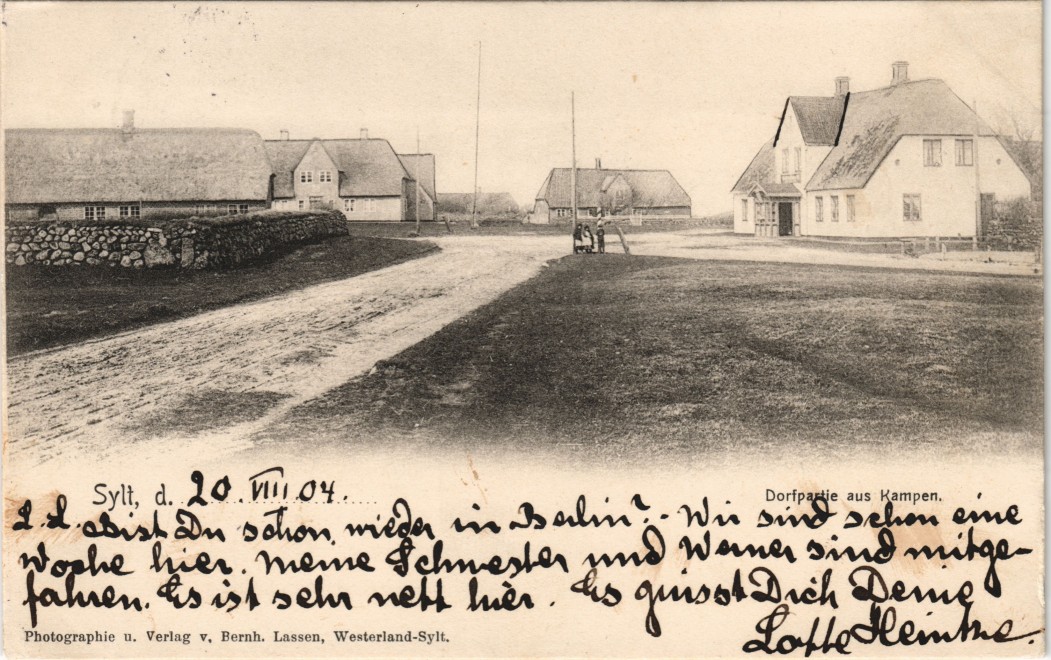 Sylt, d. 20. VIII. 04.
Dorfpartie aus Kampen.
L. L. Bist Du schon wieder in Berlin? - Wir sind schon eine
Woche hier. Meine Schwester und Werner sind mitge-
fahren. Es ist sehr nett hier. Es grüsst Dich Deine
Lotte
Photographie u. Verlag v. Bernh. Lassen, Westerland-Sylt.